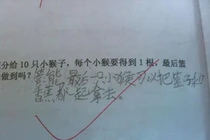 分给10只小猴子，每个小猴要得到1根，最后能
做到吗？能,最后一只小猴可以把篮子和
香蕉都一起拿去。